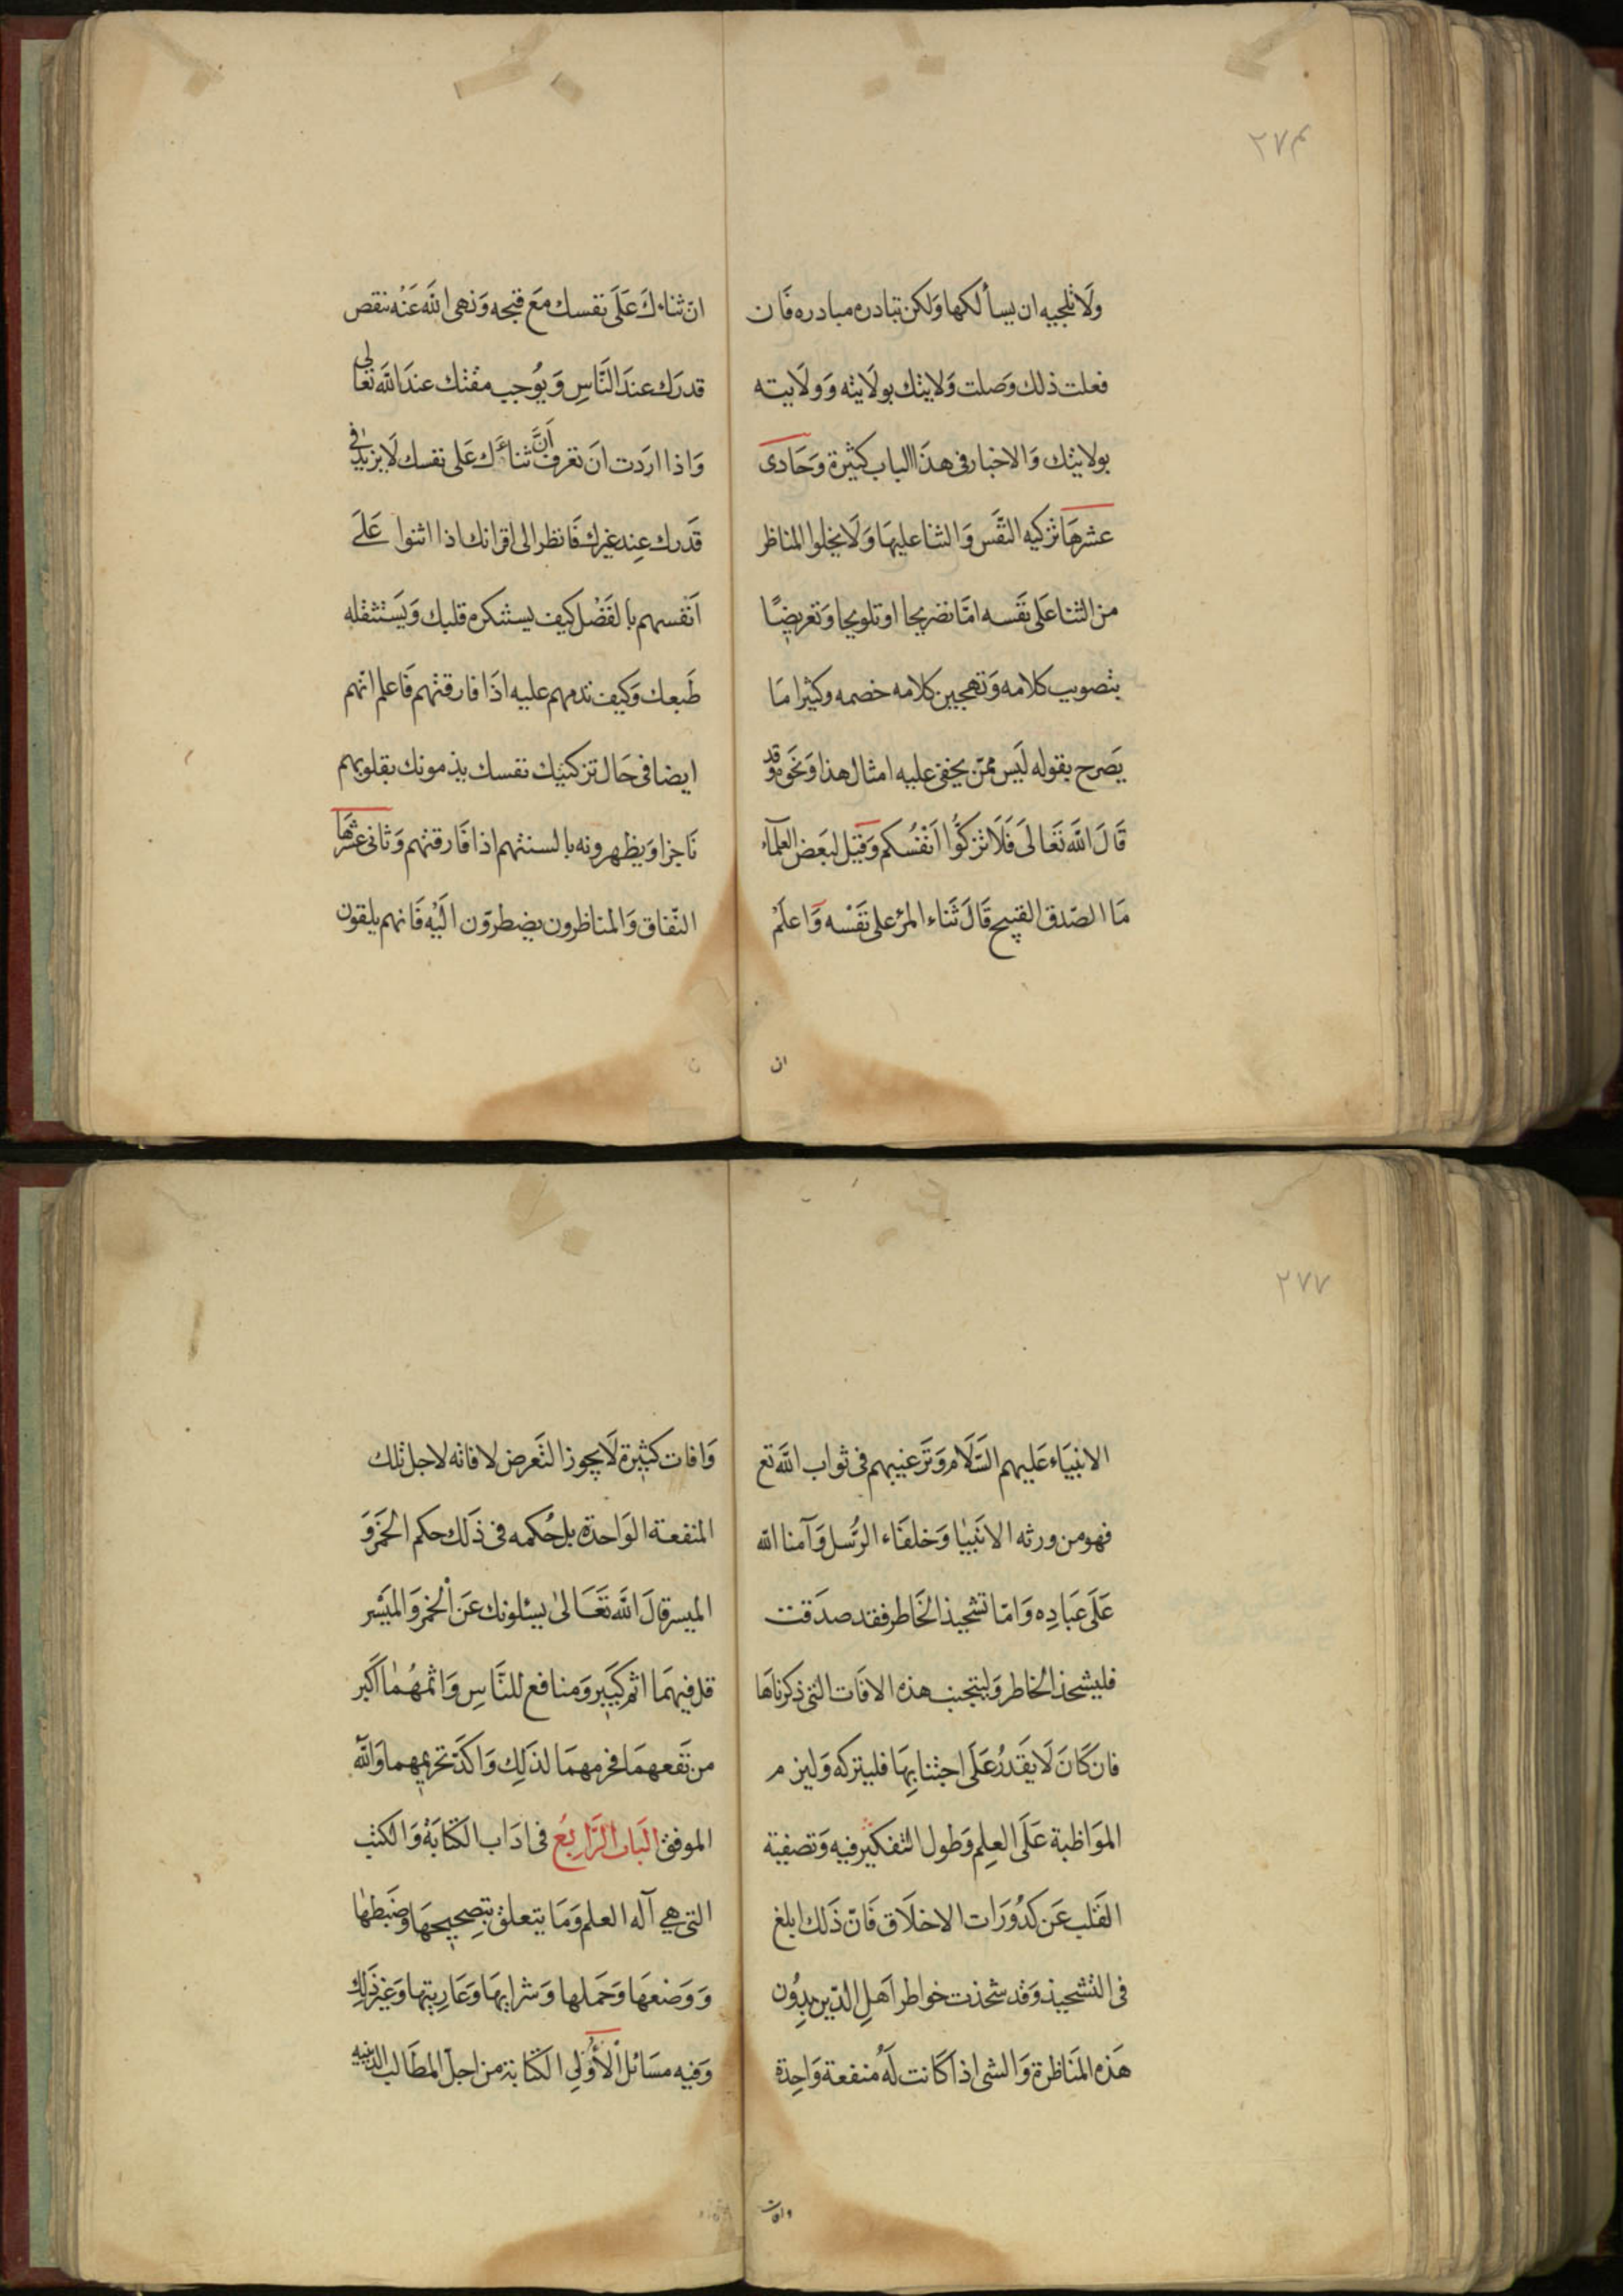 ٢٧٤
ولَا تلجیه ان یسألكها وَلكن تبادره مبادره فَان
فعلت ذلك وَصلت وَلایتك بولَایته وَولَایته
بولایتك وَالاخبار فی هذَا الباب كثیرة وَحَادی
عشرهَا تزكیه النَّفس وَالثنا علیهَا وَلَا یخلوا المناظر
من الثنا عَلی نَفسه امَّا تصریحا او تلویحا وَتعریضًا
بتصویب كلامه وَتهجین كلامه خصمه وكثیرا مَا
یَصرح بقوله لَیس ممّن یخفی علیه امثال هذا وَنحَوه وَقد
قَالَ اللَّه تَعَالَی فَلَا تزَكُّوا اَنْفُسَكم وَقیل لبَعض العلمآء
مَا الصّدق القبیح قَالَ ثَناء المرء علی نَفْسه وَاعلَمْ
ان
ان ثناءكَ عَلَی نفسك مَعَ قبحه وَنهی اللَّه عَنْه نقص
قدرَك عندَ النَّاسِ وَیُوجب مقتك عندَ اللَّه تعَالی
وَاذا اردَت انَ تعرف اَنَّ ثناءَك عَلی نفسك لَا یزید فی
قَدرك عِند غیرك فَانظر الی اقرانك اذا اثنوا عَلَی
اَنفسهم بالفَضْل كیف یستنكره قلبك وَیَستثقله
طَبعك وَكیف تذمهم علیه اذَا فارقتهم فَاعلم انهم
ایضا فی حَال تزكیتك نفسك یذمونك بقلوبهم
نَاجزا وَیظهرونه بالسنتهم اذا فَارقتهم وَثانی عَشرهَا
النّفاق وَالمناظرون یضطرّون الَیْه فَانهم یلقون
٢٧٧
الانبیَاء عَلیهم السَّلَام وَتَرغیبهم فی ثواب اللَّه تع
فهو من ورثه الانَبیٰا وَخلفَاء الرُّسل وَآمنا اللّه
عَلَی عبَادِه وَامّا تشحیذ الخَاطر فقد صدَقت
فلیشحذ الخاطر وَلیتجنب هذه الافَات التی ذكرناهَا
فان كَانَ لَا یَقَدرُ عَلَی اجتنابِهَا فلیتركه وَلیزم
الموَاظبة عَلَی العِلم وَطول التفكیر فیه وَتصفیة
القَلب عَن كدُورَات الاخلَاق فَانّ ذَلك ابلغ
فی التشحیذ وَقد شحذت خواطر اَهلِ الدّین بدِوُن
هَذه المنَاظرة وَالشی اذا كَانت لَهُ منفعة وَاحِدة
وافات
وَافات كثیرة لَا یجوز التَّعرض لافاته لاجل تلك
المنفعة الوَاحدة بل حُكمه فی ذَلك حكم الخمَر وَ
المیسر قالَ اللَّه تعَالیٰ یسئلونك عَن الْخمر وَالمیَسر
قل فیهمَا اثم كبَیر وَمنافع للنَّاسِ وَاثمهُمٰا اكَبر
من نَفعهمَا فحرمهمَا لذَلِك وَاكَدّ تحریمهما وَاللّه
الموفق البَاب الرَّابعُ فی ادَاب الكتَابَة وَالكتب
التی هِی آله العلم وَمَا یتعلق بتصِحیحهَا وضَبطهَا
وَوَضعهَا وَحَملها وَشرایهَا وَعَاریتِهَا وَغیرَ ذَلِك
وَفیه مسَائل الْأُوْلی الكتَابة من اجلّ المطَالب الدینیه